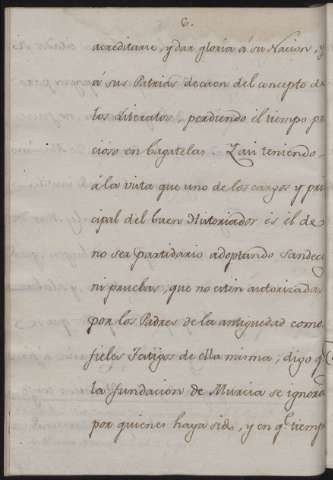 6.
acreditarse, y dar gloria á su Nacion, y
á sus Patrias decaen del concepto de
los Literatos, perdiendo el tiempo pre
cioso en bagatelas. Zavi teniendo
á la vista que uno de los cargos y prin
cipal del buen Historiador es el de
no ser partidario adoptando sandeces
ni pruebas, que no estén autorizadas
por los Padres de la antiguedad como
fieles Testigos de ella misma, digo q.
la fundacion de Murcia se ignora
por quienes haya sido, y en q.e tiempo